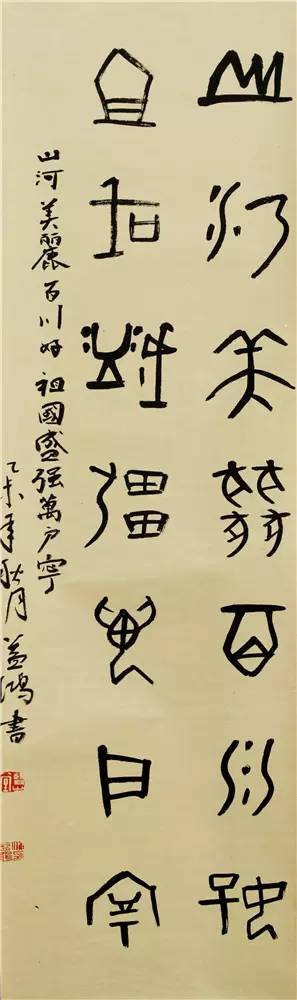 山河美麗百川好
祖國盛强萬户寧
山河美麗百川好祖國盛强萬户寧
乙未年秋月益鴻書